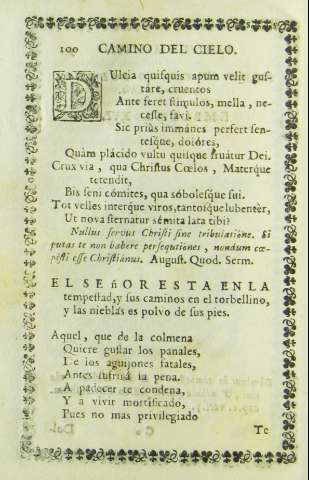 100 CAMINO DEL CIELO.
DUlcia quisquis apum velit gus-
tare, cruentos
Ante feret stimulos, mella, ne-
cesse, favi.
Sic priùs immánes perfert sen-
tesque, dolóres,
Quàm plácido vultu quisque fruátur Dei.
Crux via, qua Christus Cœlos, Materque
tetendit,
Bis seni cómites, qua sóbolesque sui.
Tot velles interque viros, tantosque lubentèr,
Ut nova sternatur sémita lata tibi?
Nullus servus Christi sine tribulatiône. Si
putas te non habere persequtiônes, nondum cœ-
pìsti esse Christiánus. August. Quod. Serm.
EL SEñOR ESTA EN LA
tempestad, y sus caminos en el torbellino,
y las nieblas es polvo de sus pies.
Aquel, que de la colmena
Quiere gustar los panales,
De los aguijones fatales,
Antes sufrirá la pena.
A padecer te condena,
Y a vivir mortificado,
Pues no mas privilegiado
Te